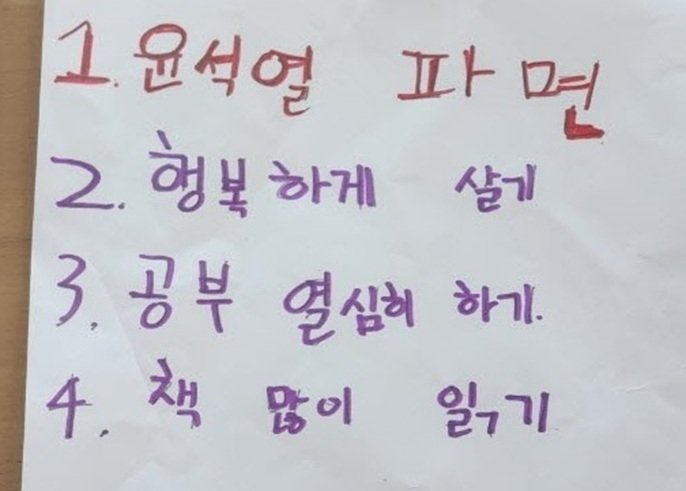 1. 윤석열 파면
2. 행복하게 살기
3. 공부 열심히 하기.
4. 책 많이 읽기